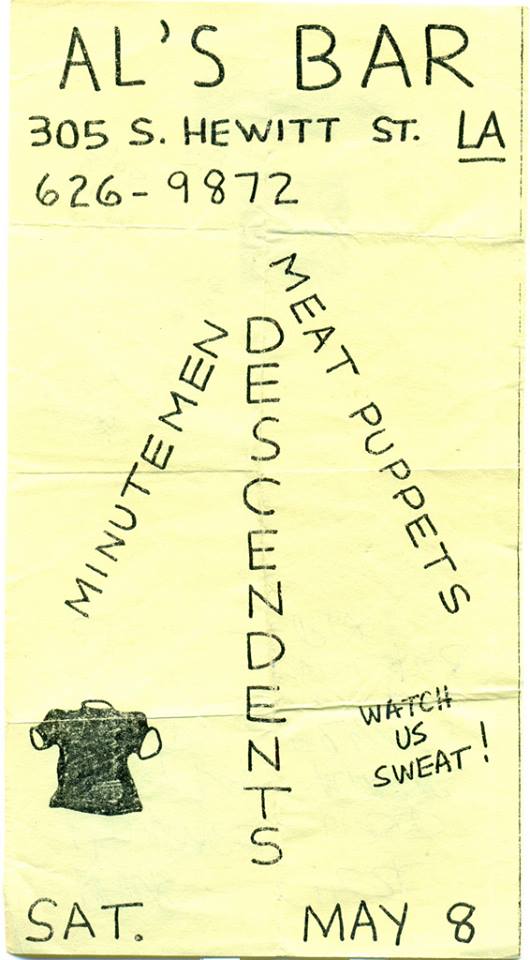 AL'S BAR
305 S. HEWITT ST. LA
626-9872
MINUTEMEN
DESCENDENTS
MEAT PUPPETS
WATCH
US
SWEAT!
SAT. MAY 8